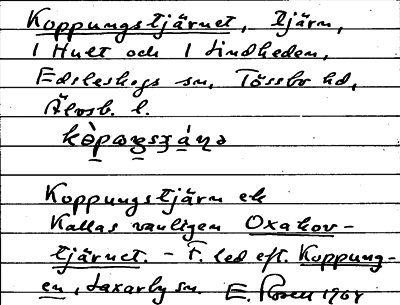 Koppungstjärnet, tjärn,
i Hult och i Lindheden,
Edsleskogs sn, Tössbo hd,
Älvsb. l.
Koppungstjärn el
kallas vanligen Oxakov-
tjärnet. – F. led eft. Koppung-
en, Laxarby sn. E. Rosell 1964